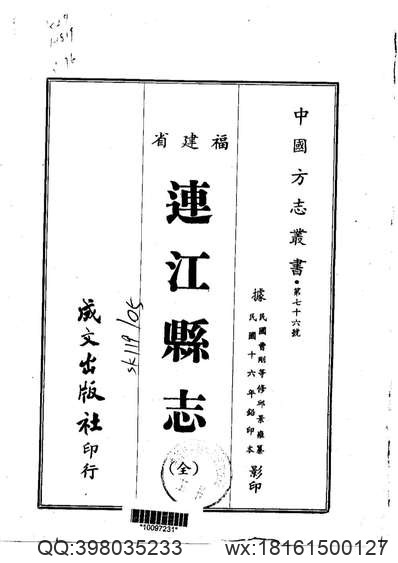 中國方志叢書・第七十六號
據
民國曹剛等修邱景雍纂
民國十六年鉛印本
影印
福建省
連江縣志
(全)
成文出版社印行
sk119/05
*10097231*
QQ:398035233
wx:18161500127